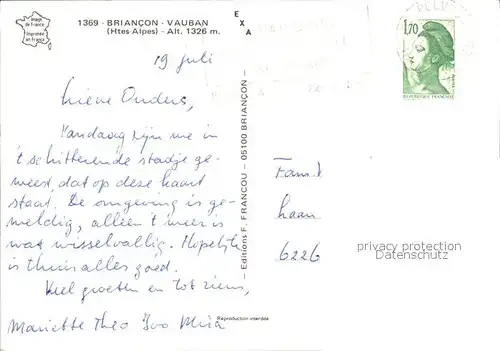 Image
de France
Imprimée
en France
1369 - BRIANÇON - VAUBAN
(Htes-Alpes) - Alt. 1326 m.
E
X
A
19 juli
Lieve Ouders,
Vandaag zijn we in
't schitterende stadje ge-
weest, dat op deze kaart
staat. De omgeving is ge-
weldig, alleen 't weer is
wat wisselvallig. Hopelijk
is thuis alles goed.
Veel groeten en tot ziens,
Mariette Theo Ivo Mira
Reproduction interdite
- Editions F. FRANCOU - 05100 BRIANÇON -
1,70
REPUBLIQUE FRANCAISE
Fam.
Laan
6226
privacy protection
Datenschutz